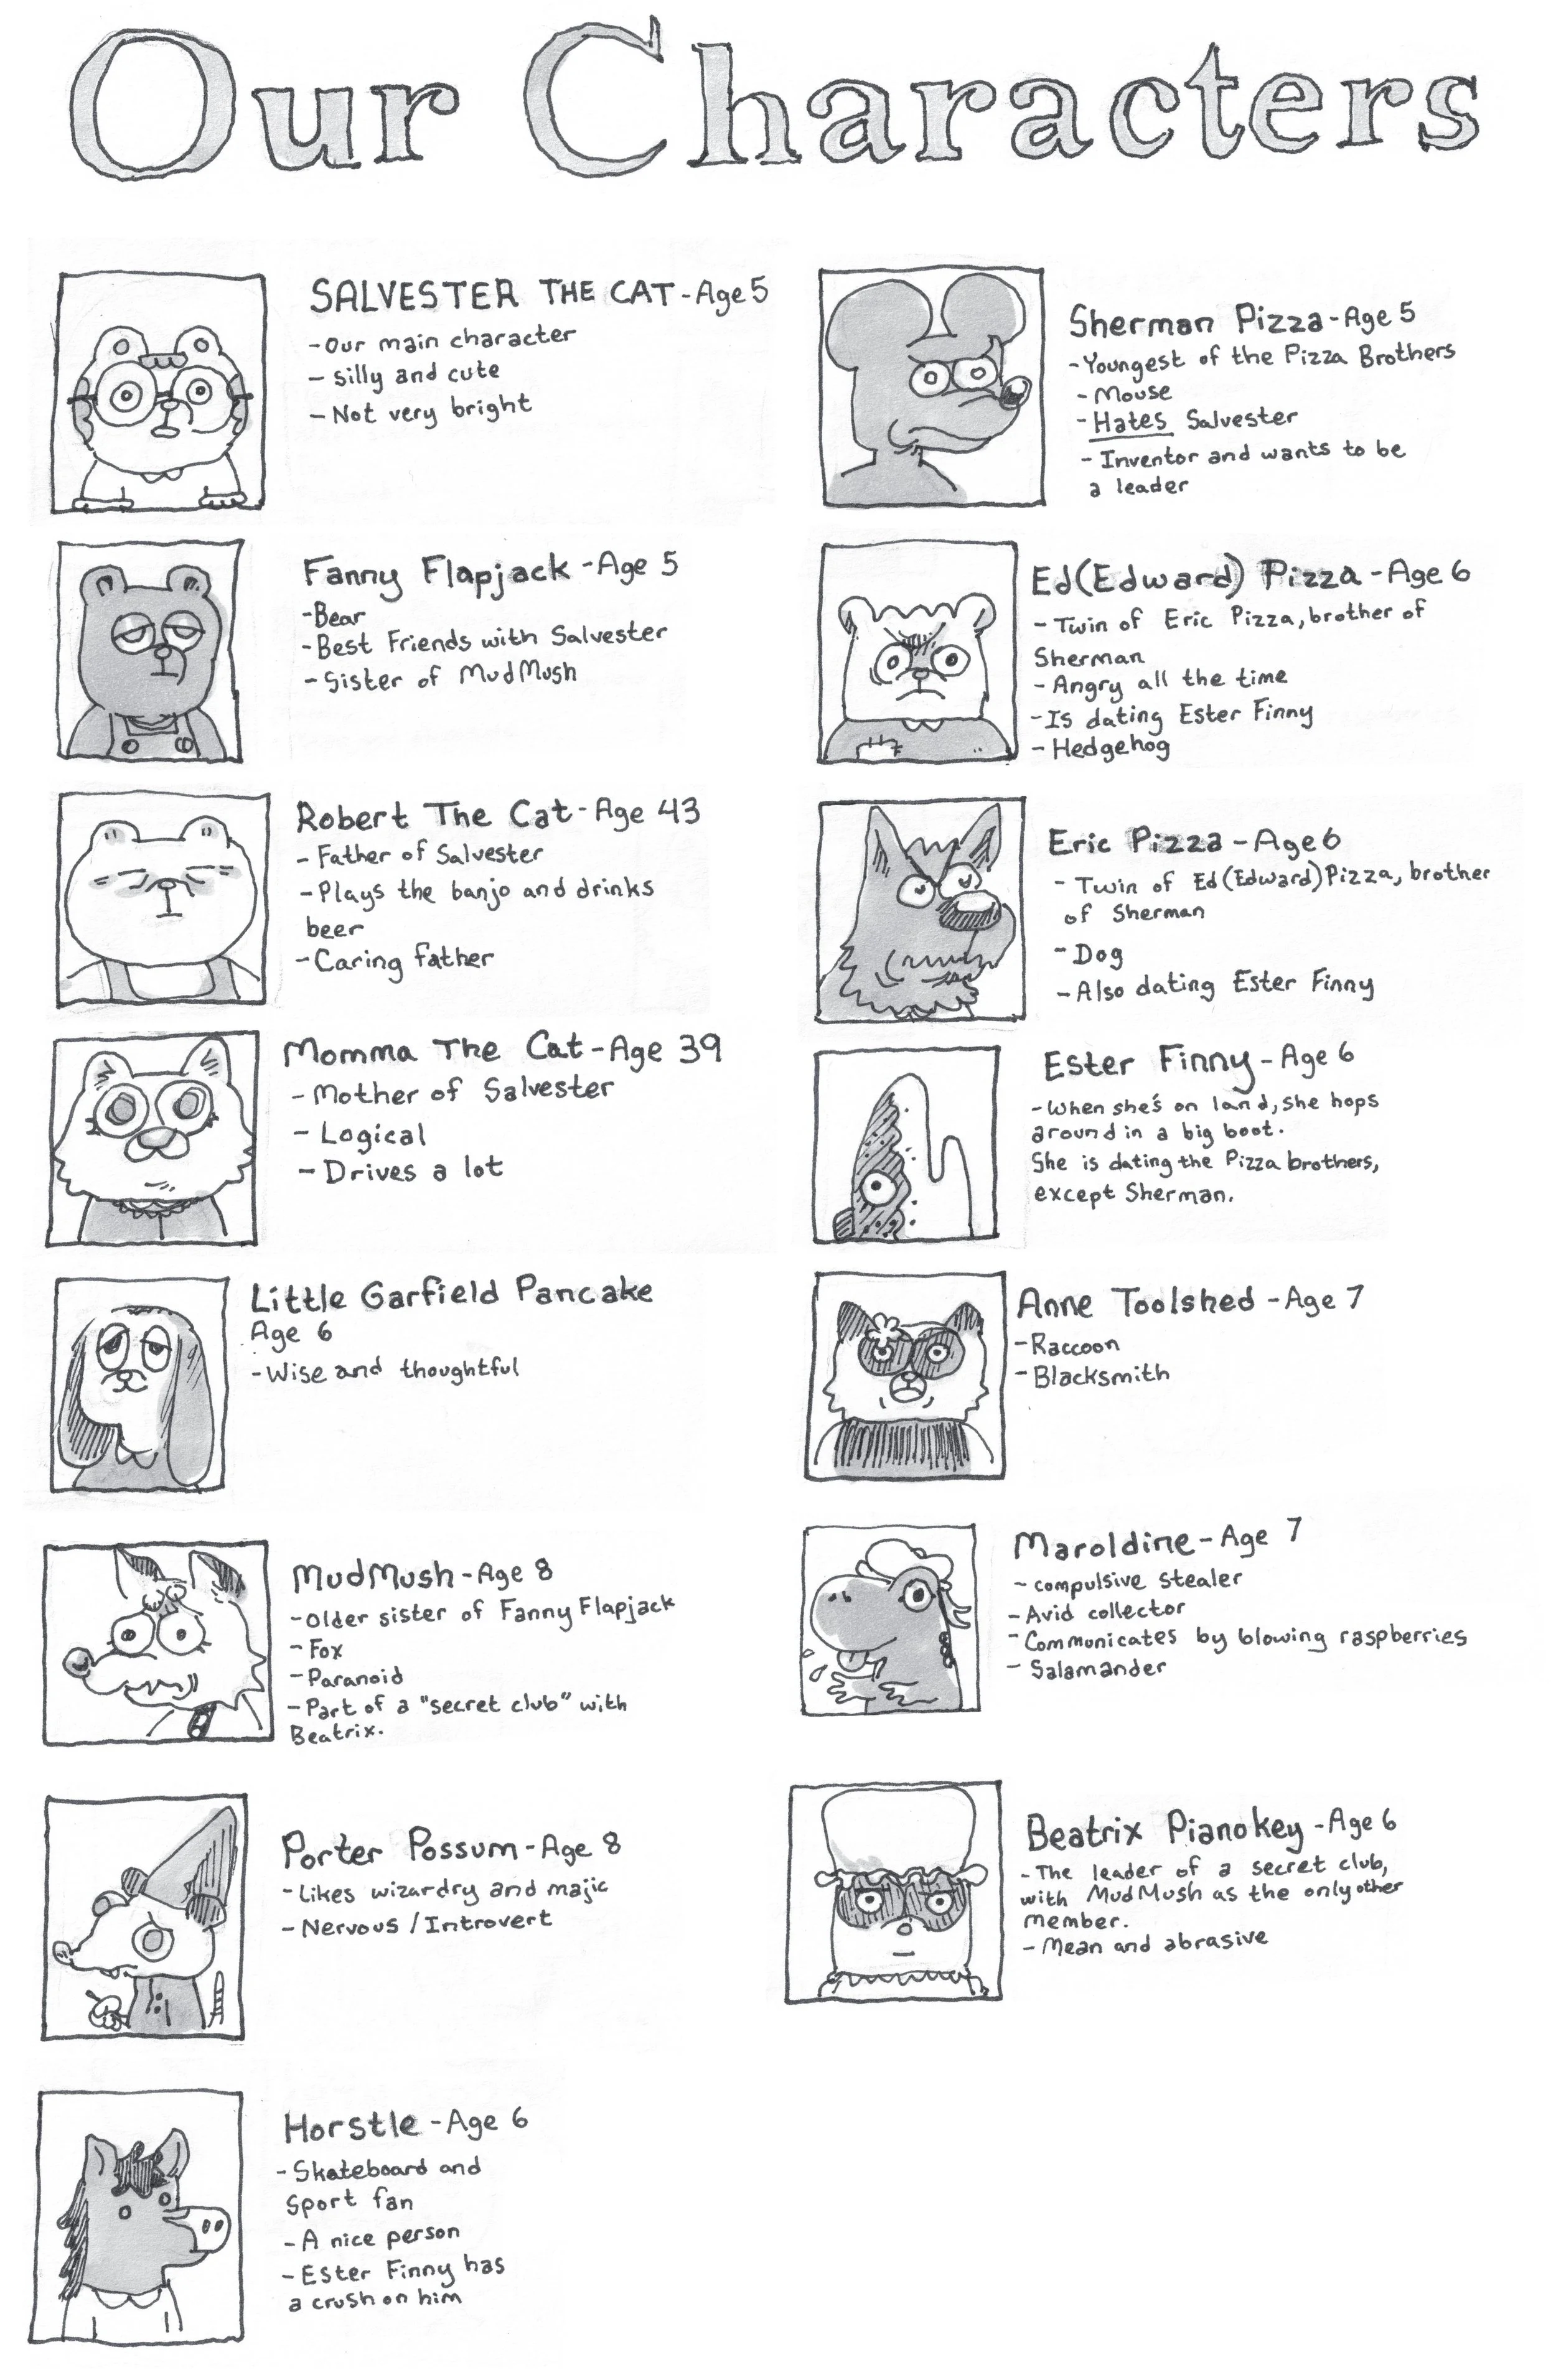 Our Characters
SALVESTER THE CAT-Age 5
-Our main character
- silly and cute
- Not very bright
Fanny Flapjack -Age 5
-Bear
-Best Friends with Salvester
-Sister of MudMush
Robert The Cat-Age 43
- Father of Salvester
-Plays the banjo and drinks
beer
-Caring father
Momma The Cat-Age 39
- Mother of Salvester
- Logical
- Drives a lot
Little Garfield Pancake
Age 6
-Wise and thoughtful
MudMush-Age 8
-Older sister of Fanny Flapjack
-Fox
-Paranoid
-Part of a "secret club" with
Beatrix.
Porter Possum-Age 8
-Likes wizardry and majic
- Nervous / Introvert
Horstle -Age 6
-Skateboard and
Sport fan
-A nice person
-Ester Finny has
a crush on him
Sherman Pizza-Age 5
-Youngest of the Pizza Brothers
-Mouse
-Hates Salvester
-Inventor and wants to be
a leader
Ed(Edward) Pizza -Age 6
- Twin of Eric Pizza, brother of
Sherman
-Angry all the time
-Is dating Ester Finny
-Hedgehog
Eric Pizza -Age 6
- Twin of Ed(Edward) Pizza, brother
of Sherman
-Dog
-Also dating Ester Finny
Ester Finny-Age 6
-When she's on land, she hops
around in a big boot.
She is dating the Pizza brothers,
except Sherman.
Anne Toolshed -Age 7
-Raccoon
-Blacksmith
Maroldine-Age 7
- compulsive stealer
-Avid collector
-Communicates by blowing raspberries
- Salamander
Beatrix Pianokey -Age 6
-The leader of a secret club,
with MudMush as the only other
member.
- Mean and abrasive